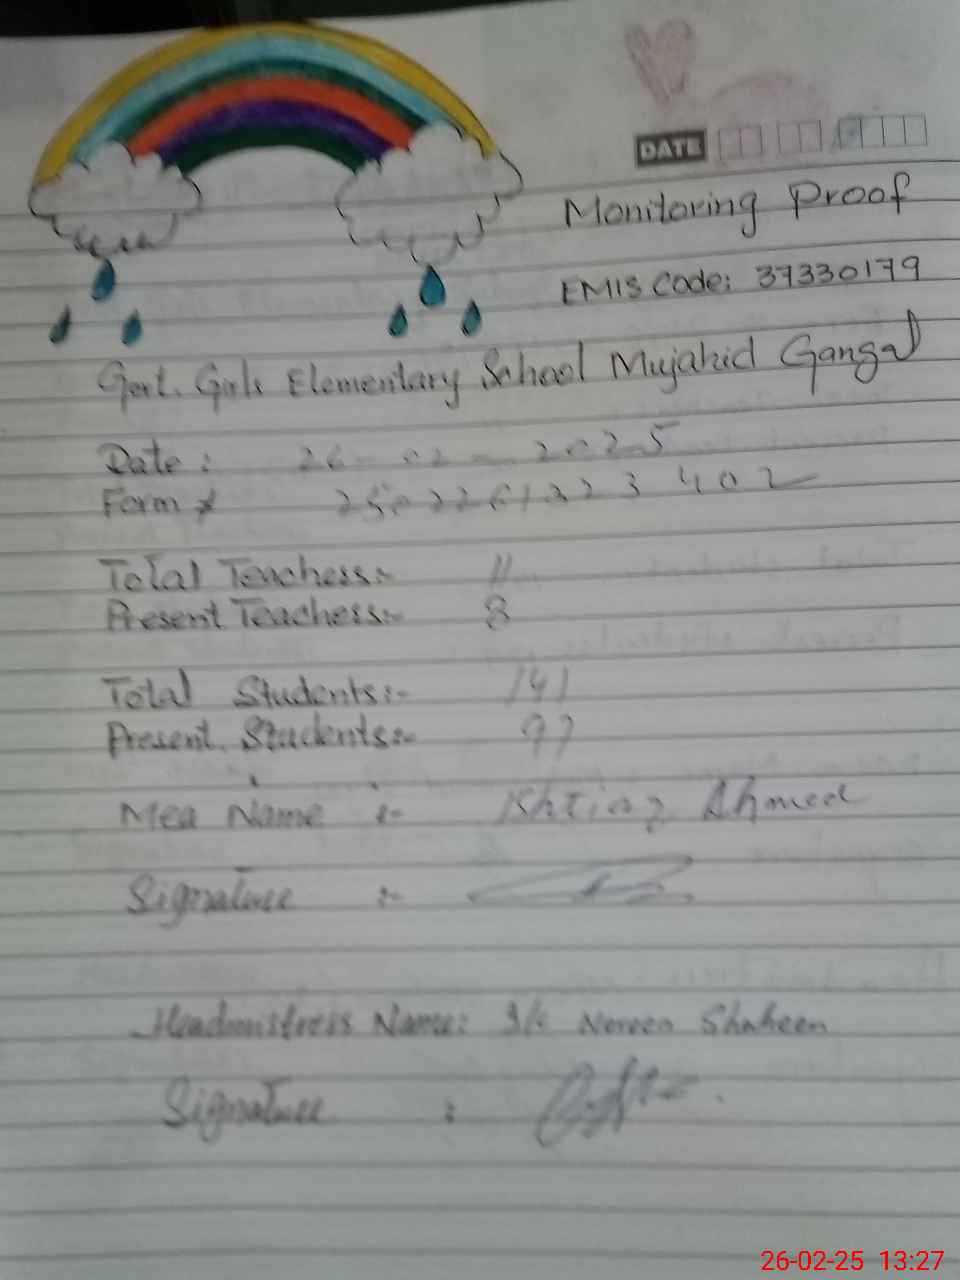 DATE
Monitoring Proof
EMIS Code: 37330179
Govt. Girls Elementary School Mujahid Gangal
Date : 26-02-2025
Form #
Total Teachers:- 11
Present Teachers:- 8
Total Students:- 141
Present Students:- 97
Mea Name :- Ahmed
Signature :-
Headmistress Name: I/c Noreen Shaheen
Signature :
26-02-25 13:27